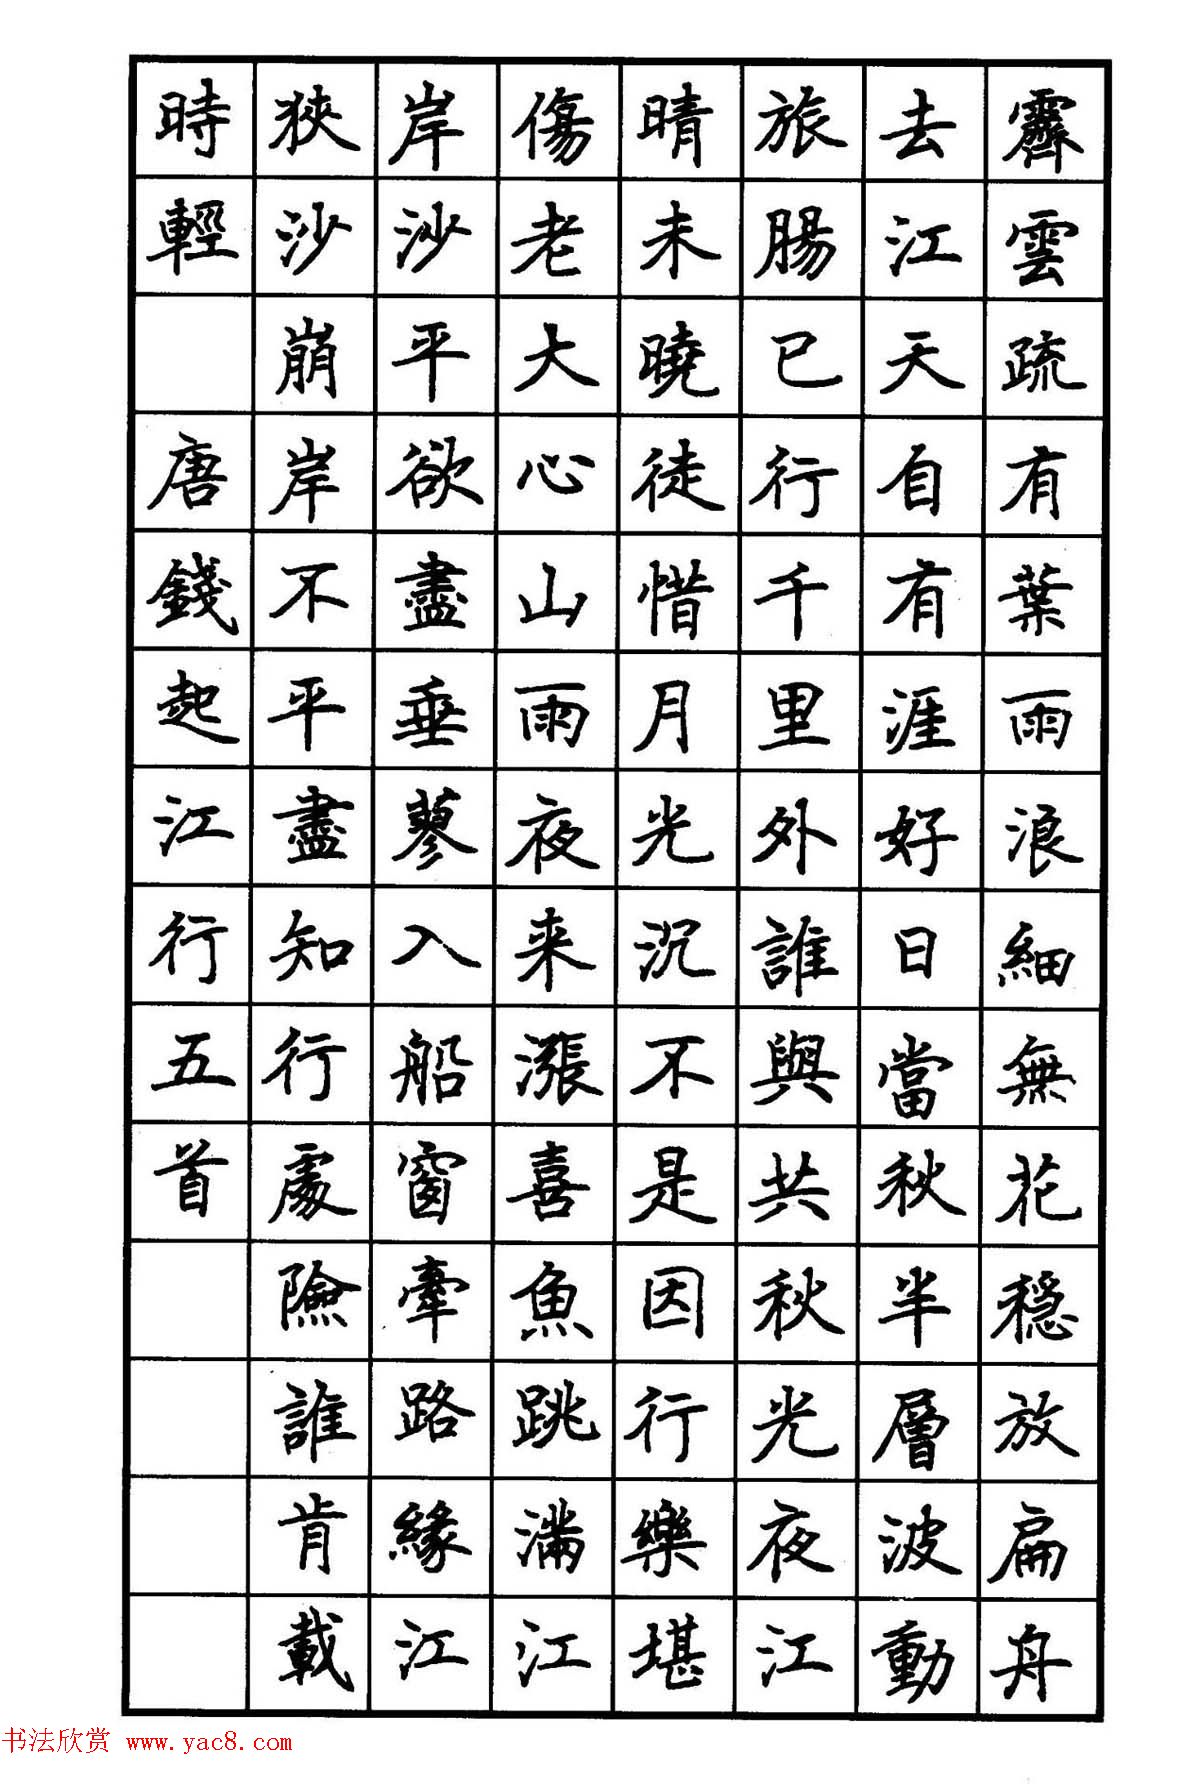 霽雲疏有葉雨浪細無花穩放扁舟
去江天自有涯好日當秋半層波動
旅腸已行千里外誰與共秋光夜江
晴未曉徒惜月光沉不是因行樂堪
傷老大心山雨夜来漲喜魚跳滿江
岸沙平欲盡垂蓼入船窗牽路緣江
狹沙崩岸不平盡知行處險誰肯載
時輕 唐錢起江行五首
书法欣赏 www.yac8.com